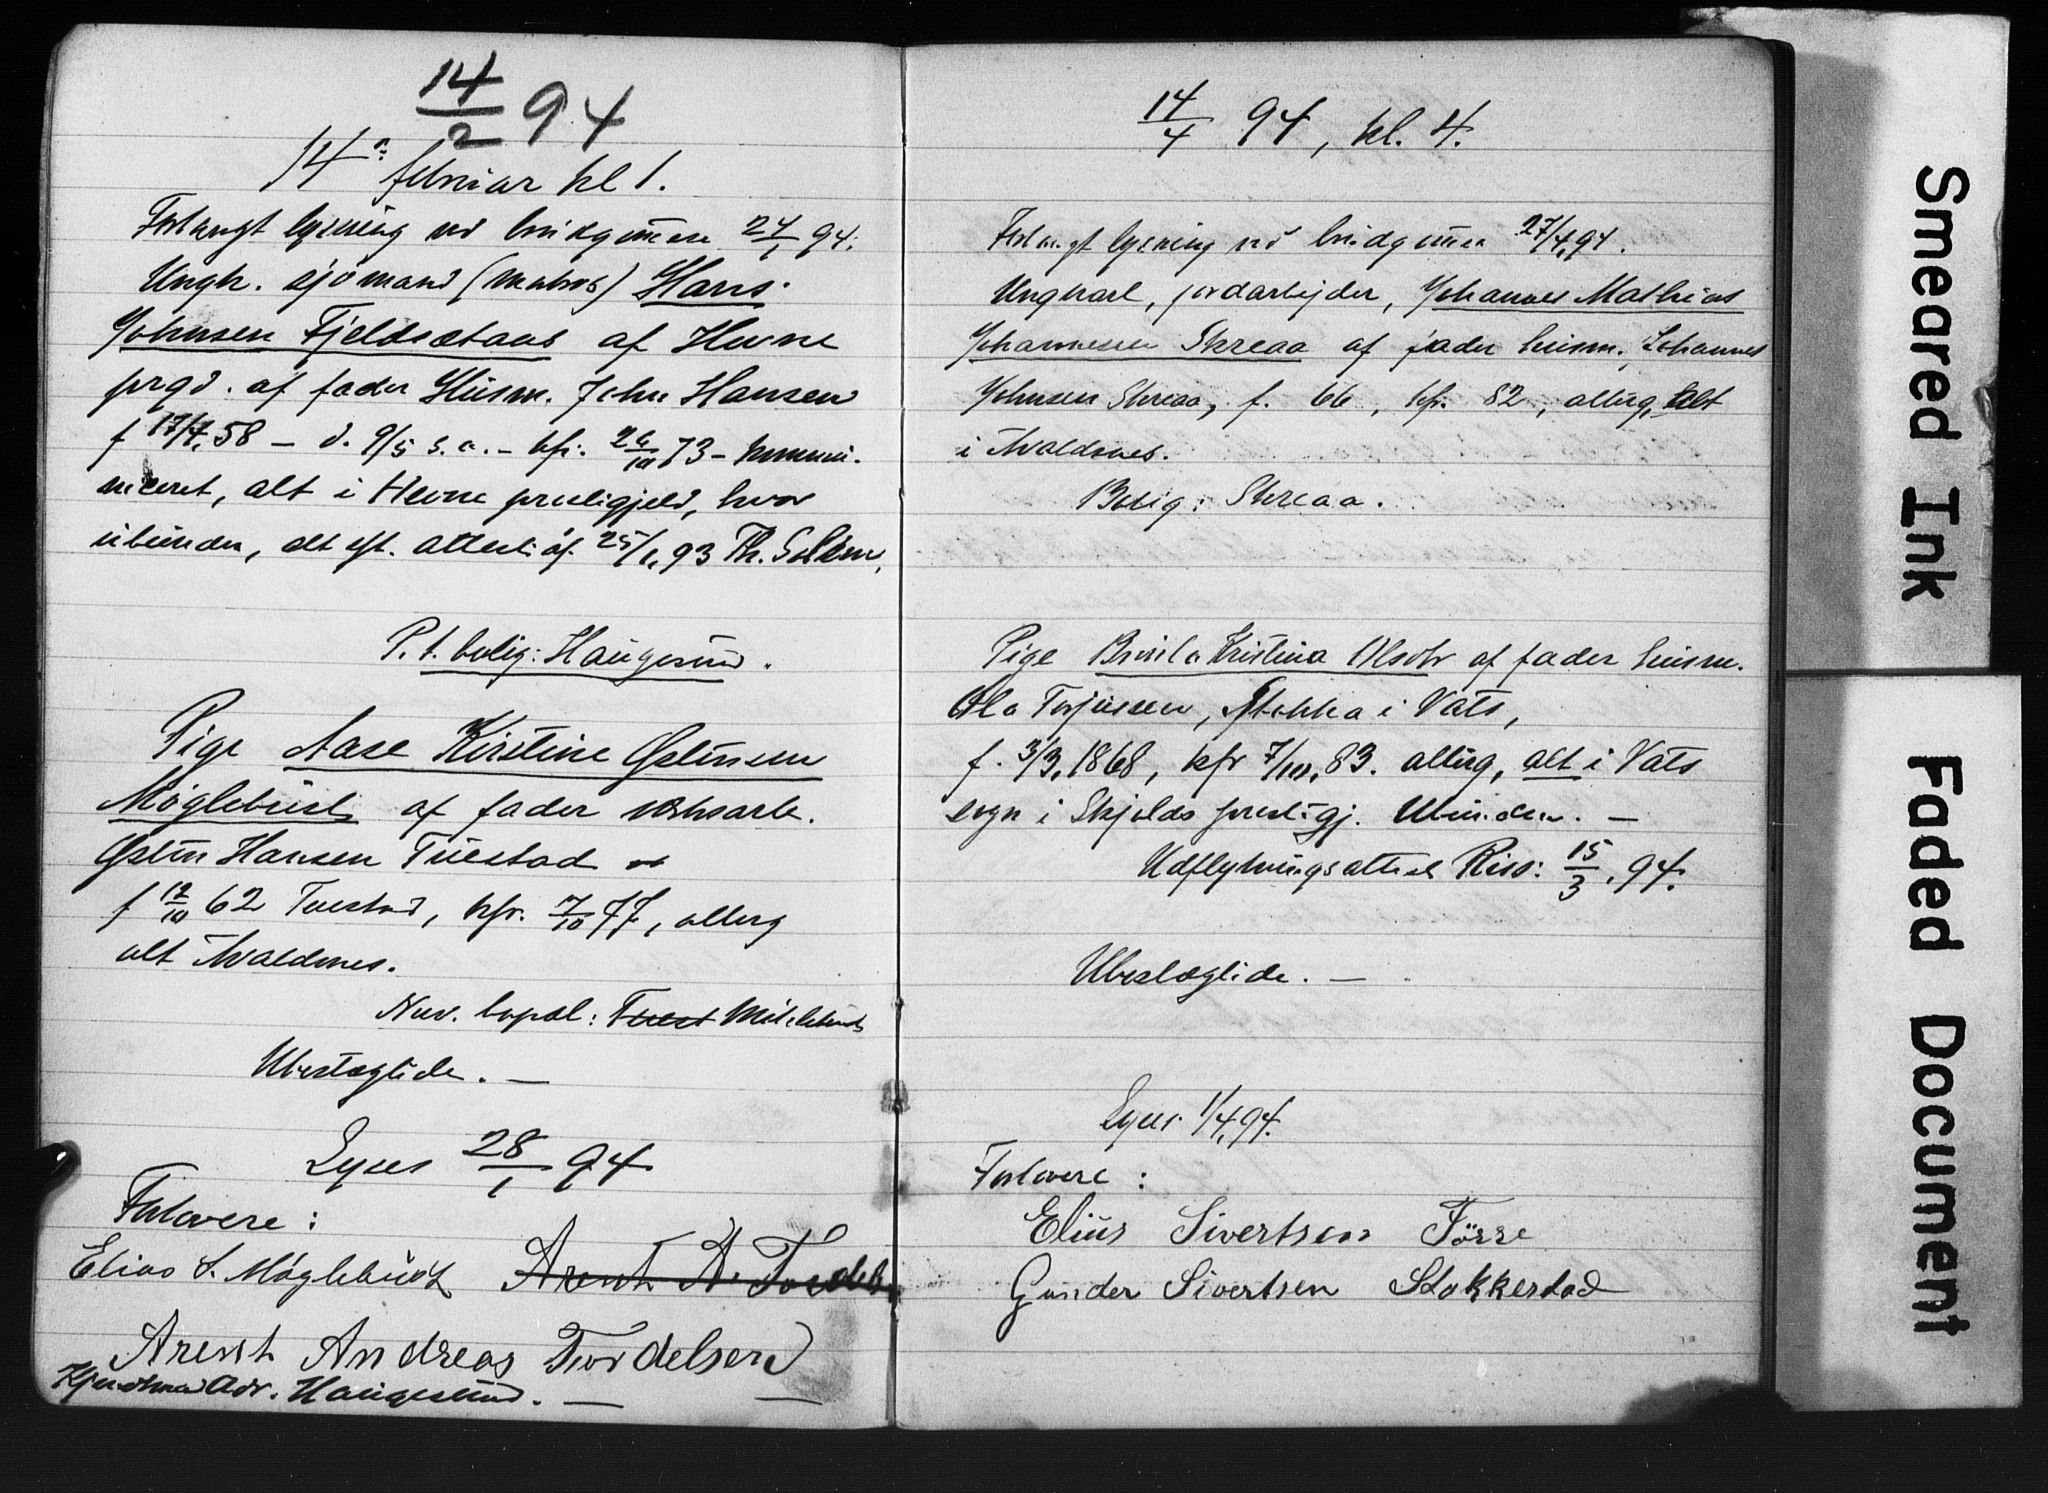 14/2 94
14de februar kl 1.
Forlangt lysning ved brudgummen 24/1 94.
Ungk. sjømand (matros) Hans
Johnsen Fjeldsætaas af Hevne
prgd. af fader Husm. John Hansen
f 17/4, 58 – d. 9/5 s.a. – kfr. 26/10 73 – kommu-
niceret, alt i Hevne prestigjeld, hvor
ubunden, alt eft. attest af 25/1, 93 Th. Solem.
P. t. bolig: Haugesund.
Pige Aase Kirstine Østensen
Møglebust af fader verksarb.
Østen Hansen Tuestad
f 12/10 62 Tuestad, kfr. 7/10 77, alterg
alt Avaldsnes.
Nuv. bopæl: Tuest
Ubeslægtede. –
Lyses 28/1 94
Forlovere:
Elias S. Møglebust Arent A. Tordels
Arent Andreas Tordelsen
Adr. Haugesund. –
14/4 94, kl. 4.
Forlangt lysning ved brudgummen 27/4, 94.
Ungkarl, jordarbejder, Johannes Mathias
Johannesen Skreaa af fader husm. Johannes
Johnsen Skreaa, f. 66, kfr. 82, alterg, alt
i Avaldsnes.
Bolig: Skreaa.
Pige Kristina Olsdtr af fader husm.
Ola Torjussen, Stakka i Vats,
f. 3/3, 1868, kfr 7/10, 83. alterg, alt i Vats
sogn i Skjolds prestigj. Ubunden. –
Udflytningsattest Riis: 15/3, 94.
Ubeslægtede. –
Lyses 1/4, 94.
Forlovere:
Elius Sivertsen Førre
Gunder Sivertsen Stokkestad
Smeared Ink
Faded Document